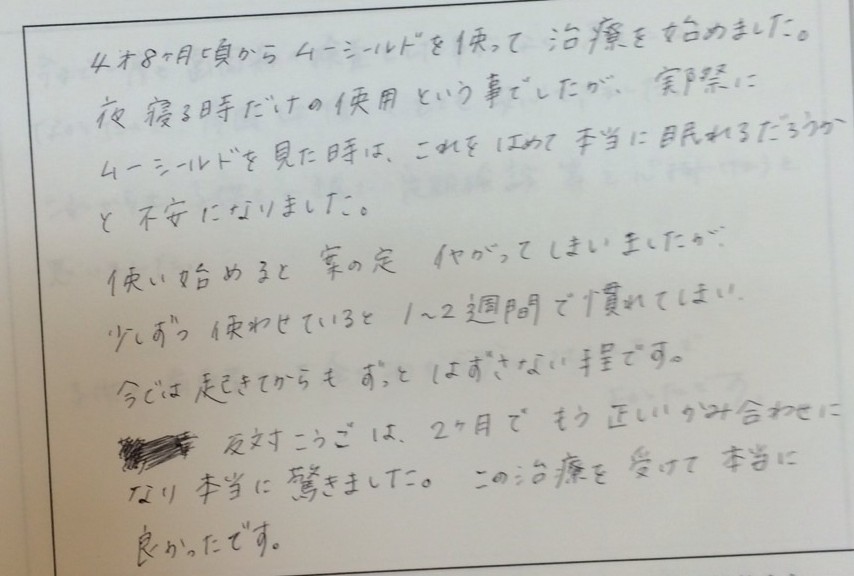 4才8ヶ月頃から ムーシールドを使って 治療を始めました。
夜 寝る時だけの使用 という事でしたが、実際に
ムーシールドを見た時は、これを はめて 本当に眠れるだろうか
と 不安になりました。
使い始めると 案の定 イヤがって しまいましたが、
少しずつ 使わせていると 1~2週間で慣れてしまい、
今では 起きてからも ずっと はずさない程です。
反対すこうごは、2ヶ月で もう 正しい かみ合わせに
なり 本当に 驚きました。この治療を 受けて 本当に
良かったです。